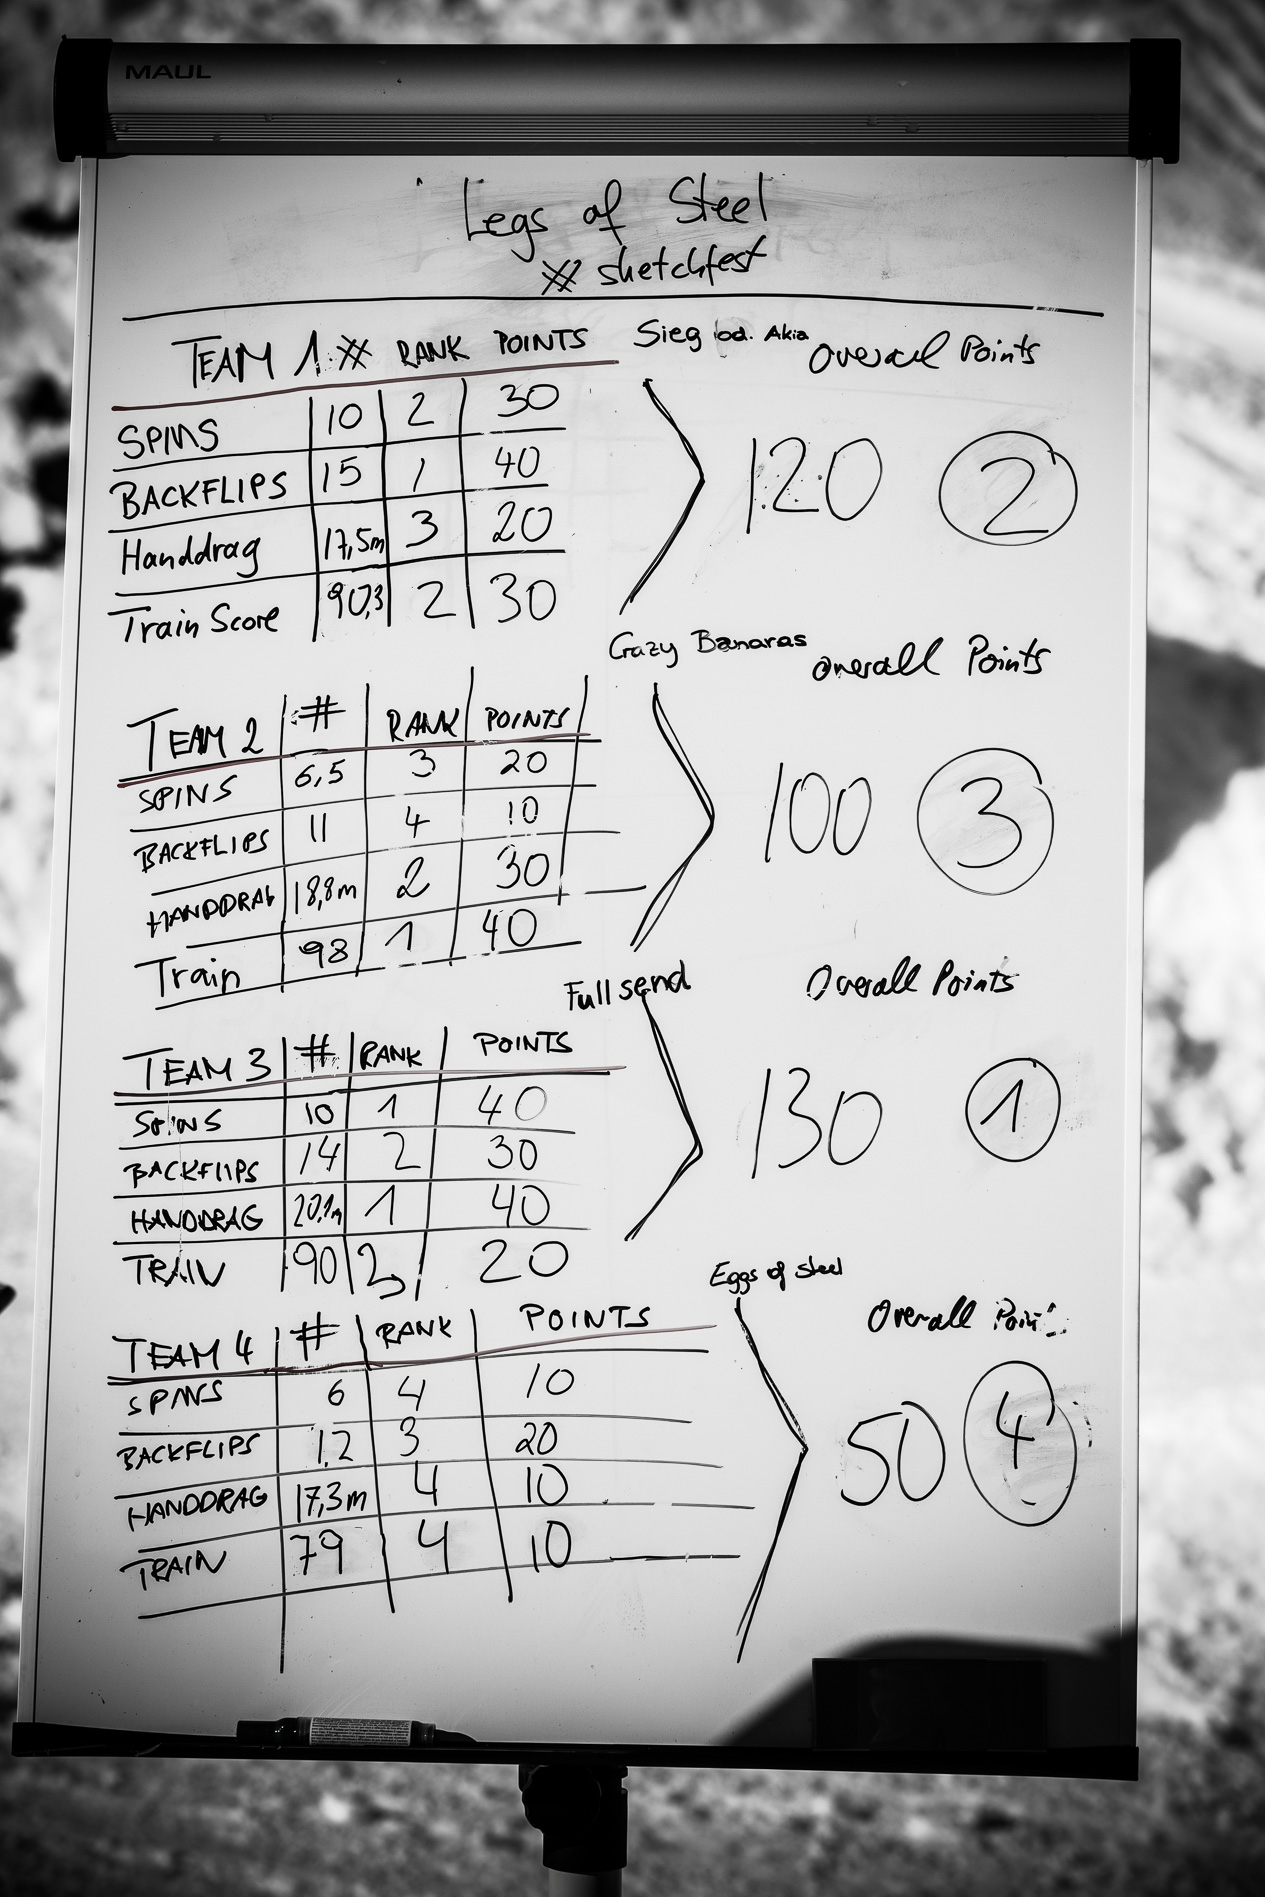 MAUL
Legs of Steel
# sketchfest
TEAM 1 # RANK POINTS Sieg od. Akia Overall Points
SPINS 10 2 30
BACKFLIPS 15 1 40
Handdrag 17,5m 3 20
Train Score 90,3 2 30
120 2
Crazy Bananas Overall Points
TEAM 2 # RANK POINTS
SPINS 6,5 3 20
BACKFLIPS 11 4 10
HANDDRAG 18,8m 2 30
Train 98 1 40
100 3
Full send Overall Points
TEAM 3 # RANK POINTS
SPINS 10 1 40
BACKFLIPS 14 2 30
HANDDRAG 20,1m 1 40
TRAIN 90 3 20
130 1
Eggs of steel Overall Points
TEAM 4 # RANK POINTS
SPINS 6 4 10
BACKFLIPS 12 3 20
HANDDRAG 17,3m 4 10
TRAIN 79 4 10
50 4